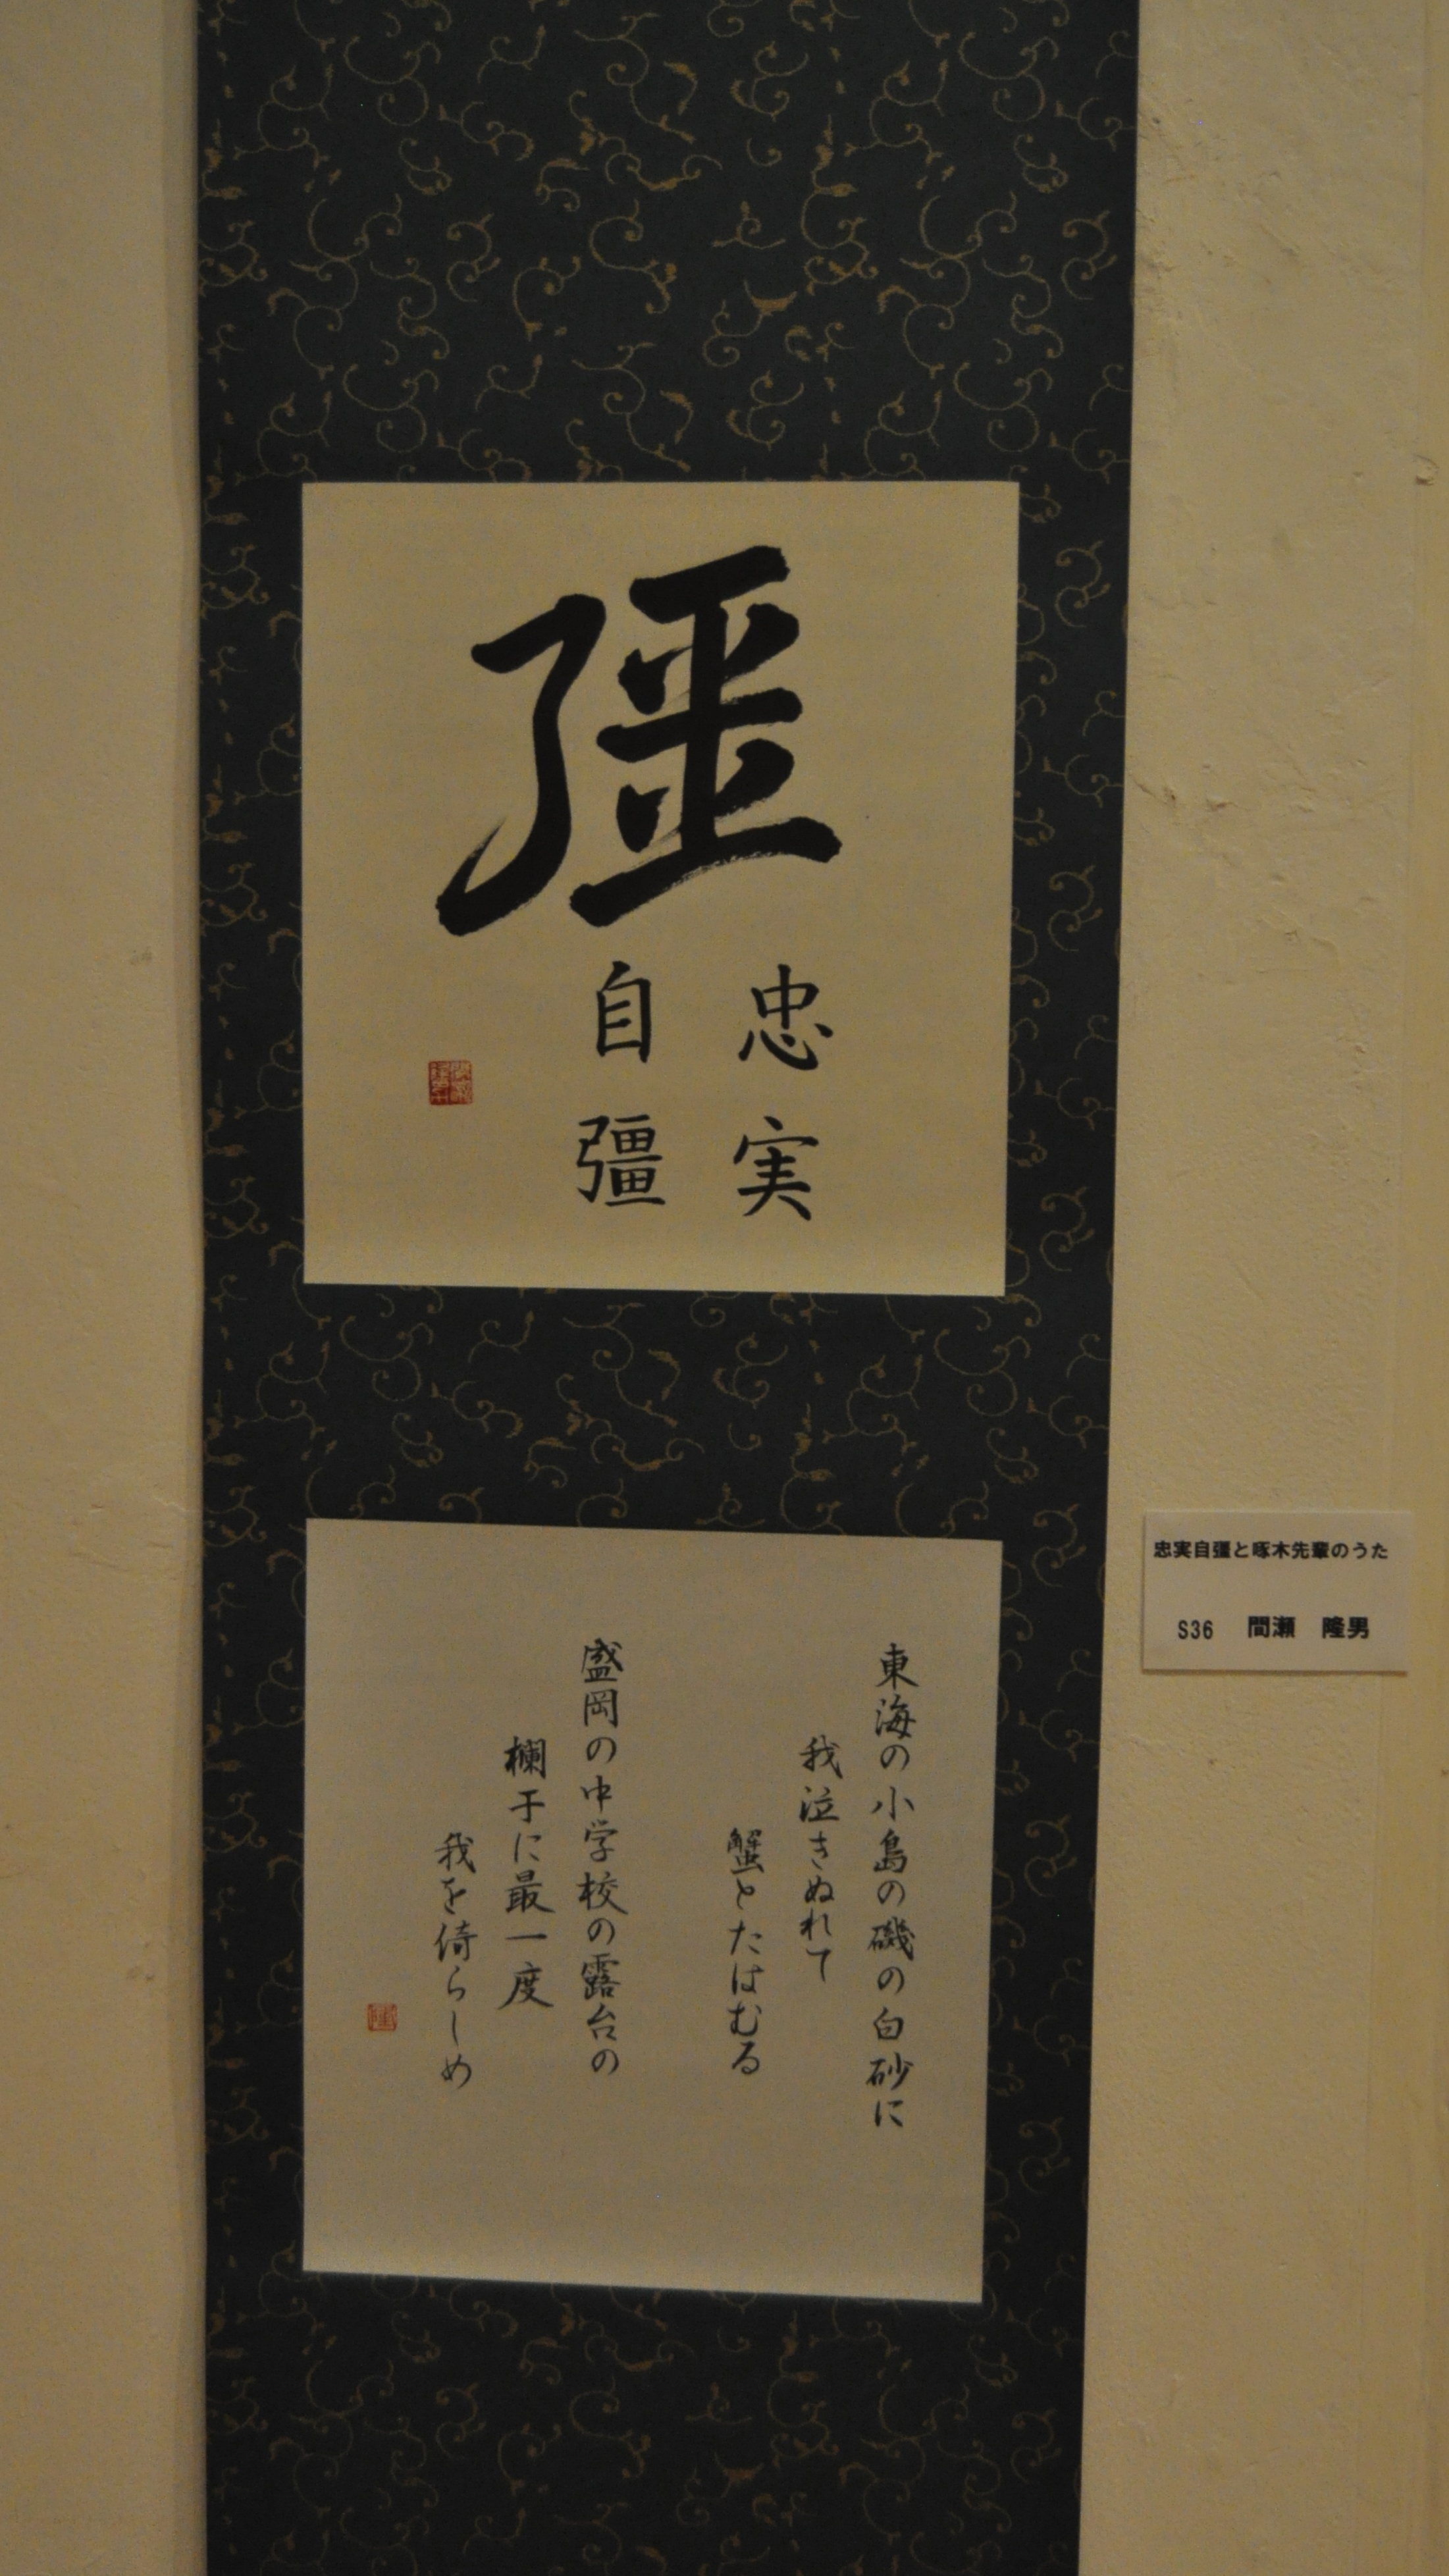 彊
忠実
自彊
東海の小島の磯の白砂に
我泣きぬれて
蟹とたはむる
盛岡の中学校の露台の
欄干に最一度
我を倚らしめ
忠実自彊と啄木先輩のうた
S36 間瀬 隆男